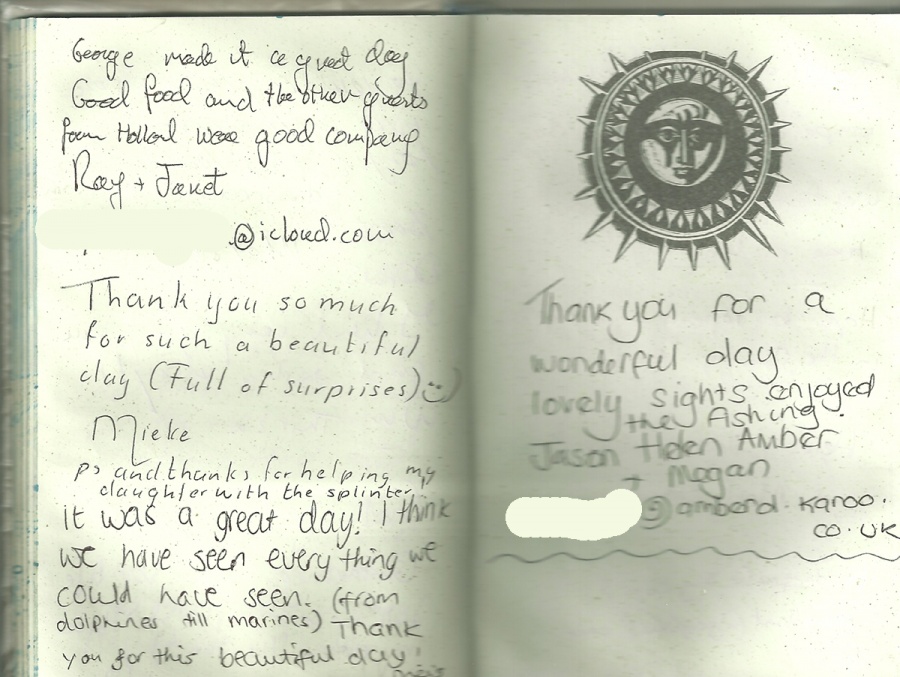 George made it a great day
Good food and the other guests
from Holland were good company
Ray + Janet
@icloud.com
Thank you so much
for such a beautiful
day (Full of surprises) :)
Mieke
ps and thanks for helping my
daughter with the splinter
it was a great day! I think
we have seen everything we
could have seen. (from
dolphines till marines) Thank
you for this beautiful day!
Thank you for a
wonderful day
lovely sights enjoyed
the fishing.
Jason Helen Amber
+ Megan
@amberd.karoo.
co.uk